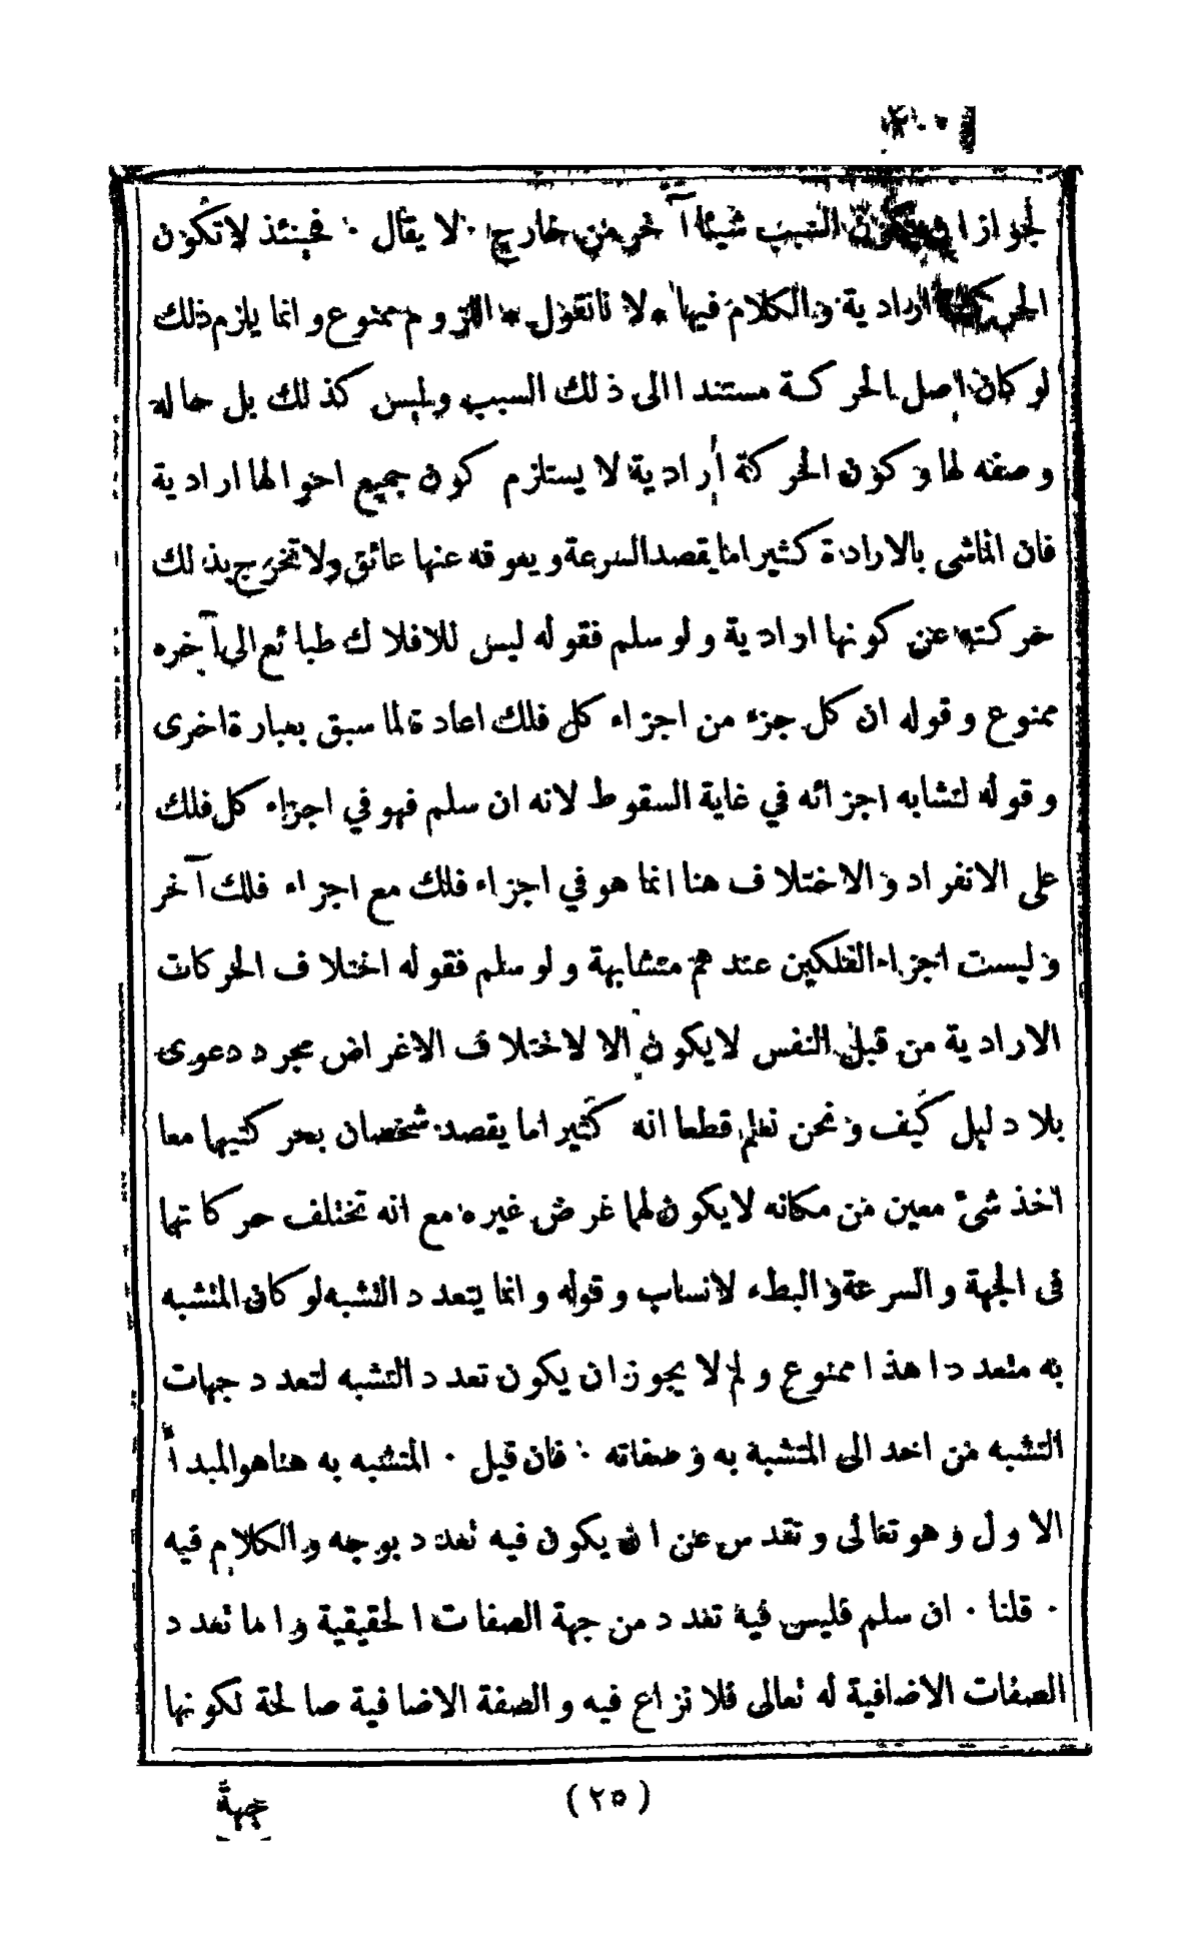 لجواز ان يكون السبب شيئا آخر من خارج ٠ لا يقال ٠ فحينئذ لا تكون
الحركة ارادية والكلام فيها * لا نا نقول * اللزوم ممنوع وانما يلزم ذلك
لو كان اصل الحركة مستندا الى ذلك السبب وليس كذلك بل حاله
وصفه لها وكون الحركة ارادية لا يستلزم كون جميع احوالها ارادية
فان الماشى بالارادة كثيرا ما يقصد السرعة ويعوقه عنها عائق ولا تخرج بذلك
حركته عن كونها ارادية ولو سلم فقوله ليس للافلاك طبائع الى آخره
ممنوع وقوله ان كل جزء من اجزاء كل فلك اعادة لما سبق بعبارة اخرى
وقوله لتشابه اجزائه في غاية السقوط لانه ان سلم فهو في اجزاء كل فلك
على الانفراد والاختلاف هنا انما هو في اجزاء فلك مع اجزاء فلك آخر
وليست اجزاء الفلكين عندهم متشابهة ولو سلم فقوله اختلاف الحركات
الارادية من قبل النفس لا يكون الا لاختلاف الاغراض مجرد دعوى
بلا دليل كيف ونحن نعلم قطعا انه كثيرا ما يقصد شخصان بحركتيهما معا
اخذ شئ معين من مكانه لا يكون لهما غرض غيره مع انه تختلف حركاتهما
فى الجهة والسرعة والبطء لانساب وقوله وانما يتعدد التشبه لو كان المتشبه
به متعددا هذا ممنوع ولم لا يجوز ان يكون تعدد التشبه لتعدد جهات
التشبه من احد الى المتشبة به وصفاته ٠ فان قيل ٠ المتشبه به هنا هو المبدأ
الاول وهو تعالى وتقدس عن ان يكون فيه تعدد بوجه والكلام فيه
٠ قلنا ٠ ان سلم فليس فيه تعدد من جهة الصفات الحقيقية واما تعدد
الصفات الاضافية له تعالى فلا نزاع فيه والصفة الاضافية صالحة لكونها
(٢٥)
جهة